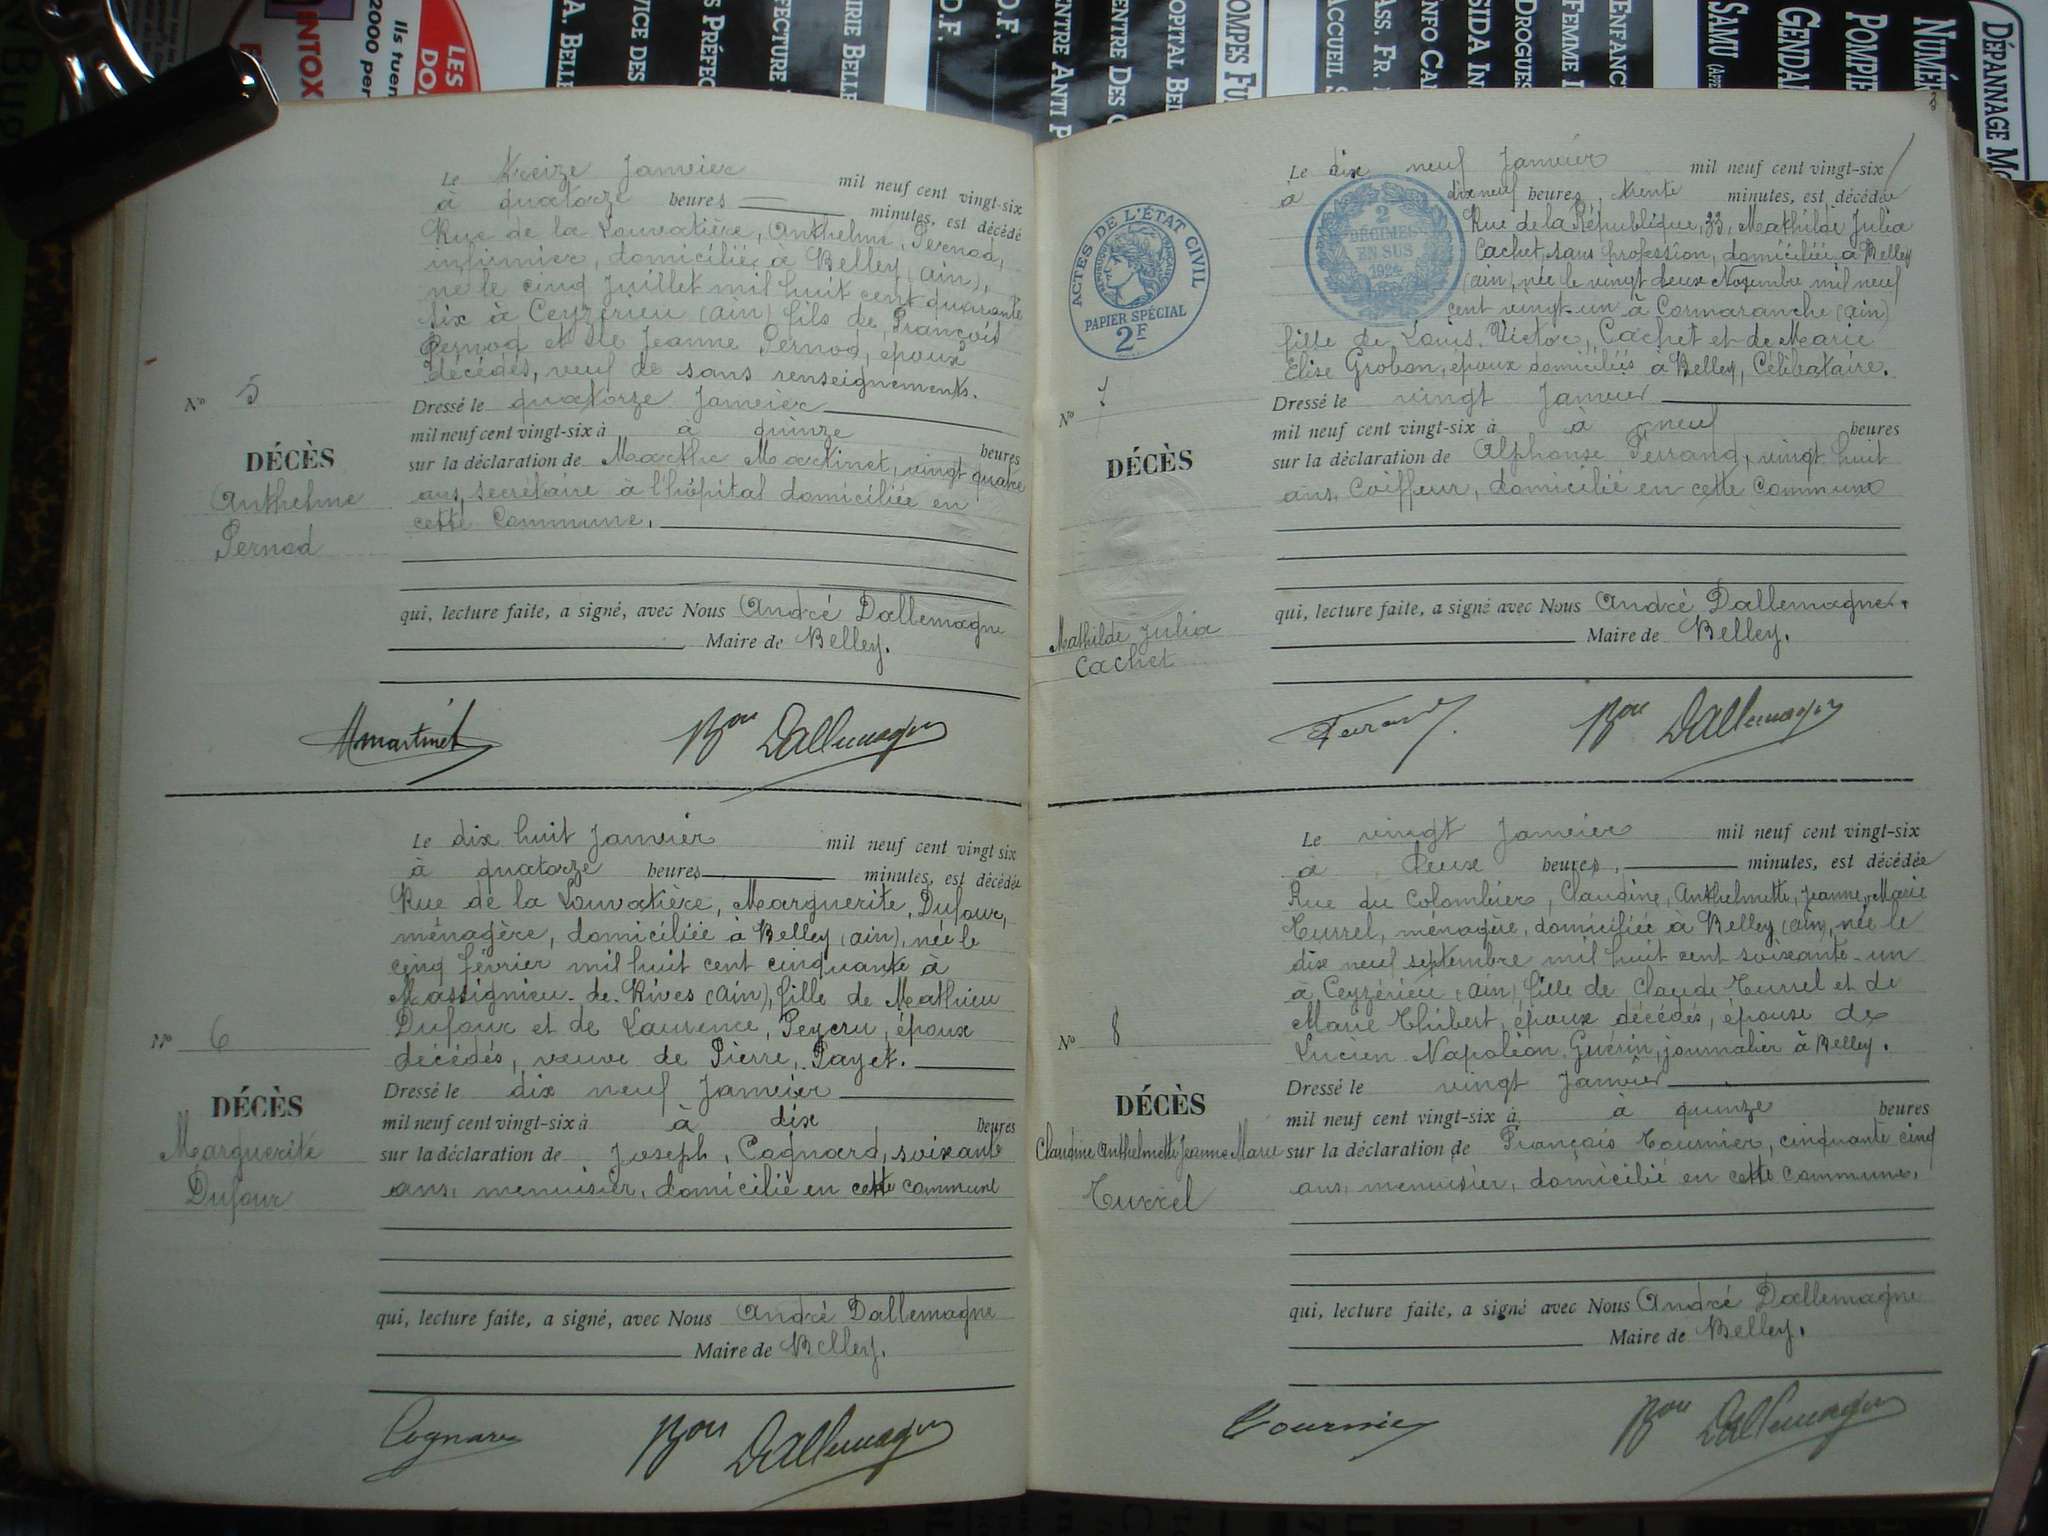 INTOX
2000 per
Ils tuen
LES
DO
A. BELLE
VICE DES
S PRÉFEC
FECTURE
IRE BELLE
D.F.
D.F.
ENTRE ANTI P
ENTRE DES
OPITAL BE
OMPES FU
ACCUEIL S
ASS. FR.
INFO CA
SIDA IN
DROGUES
FEMME
ENFANC
SAMU
GENDA
POMPIE
NUMÉR
DÉPANNAGE MO
Le treize Janvier mil neuf cent vingt-six
à quatorze heures minutes, est décédé
Rue de la Louvatière, Anthelme, Pernod,
infirmier, domicilié à Belley (ain),
né le cinq Juillet mil huit cent quarante
six à Ceyzérieu (ain) fils de François
Pernod et de Jeanne Pernod, époux
décédés, veuf de sans renseignements.
N° 5
Dressé le quatorze Janvier
mil neuf cent vingt-six à à quinze heures
DÉCÈS
Anthelme
Pernod
sur la déclaration de Marthe Martinet, vingt quatre
ans, secrétaire à l'hôpital domiciliée en
cette commune.
qui, lecture faite, a signé, avec Nous André Dallemagne
Maire de Belley.
Mmartinet
Bon Dallemagne
Le dix huit Janvier mil neuf cent vingt six
à quatorze heures minutes, est décédée
Rue de la Louvatière, Marguerite, Dufour,
ménagère, domiciliée à Belley (ain), née le
cinq février mil huit cent cinquante à
Massignieu-de-Rives (ain), fille de Mathieu
Dufour et de Laurence, Peycru, époux
décédés, veuve de Pierre, Payet.
N° 6
Dressé le dix neuf Janvier
mil neuf cent vingt-six à à dix heures
DÉCÈS
Marguerite
Dufour
sur la déclaration de Joseph, Cognard, soixante
ans, menuisier, domicilié en cette commune
qui, lecture faite, a signé, avec Nous André Dallemagne
Maire de Belley.
Cognard
Bon Dallemagne
3
ACTES DE L'ÉTAT CIVIL
PAPIER SPÉCIAL
2F
2
DÉCIMES
EN SUS
Le dix neuf Janvier mil neuf cent vingt-six
à dix neuf heures, trente minutes, est décédée
Rue de la République, 33, Mathilde Julia
Cachet, sans profession, domiciliée à Belley
(ain), née le vingt deux Novembre mil neuf
cent vingt-un à Cormaranche (ain)
fille de Louis, Victor, Cachet et de Marie
Elise Grobon, époux domiciliés à Belley, Célibataire.
N° 7
Dressé le vingt Janvier
mil neuf cent vingt-six à à neuf heures
DÉCÈS
Mathilde Julia
Cachet
sur la déclaration de Alphonse Ferrand, vingt huit
ans, Coiffeur, domicilié en cette commune
qui, lecture faite, a signé avec Nous André Dallemagne.
Maire de Belley.
Ferrand
Bon Dallemagne
Le vingt Janvier mil neuf cent vingt-six
à deux heures, minutes, est décédée
Rue du Colombier, Claudine, Anthelmette, Jeanne, Marie
Turrel, ménagère, domiciliée à Belley (ain), née le
dix neuf septembre mil huit cent soixante-un
à Ceyzérieu (ain) fille de Claude Turrel et de
Marie Thibert, époux décédés, épouse de
Lucien Napoléon, Guérin, journalier à Belley.
N° 8
Dressé le vingt Janvier
mil neuf cent vingt-six à à quinze heures
DÉCÈS
Claudine Anthelmette Jeanne Marie
Turrel
sur la déclaration de François Tournier, cinquante cinq
ans, menuisier, domicilié en cette commune.
qui, lecture faite, a signé avec Nous André Dallemagne
Maire de Belley.
Tournier
Bon Dallemagne